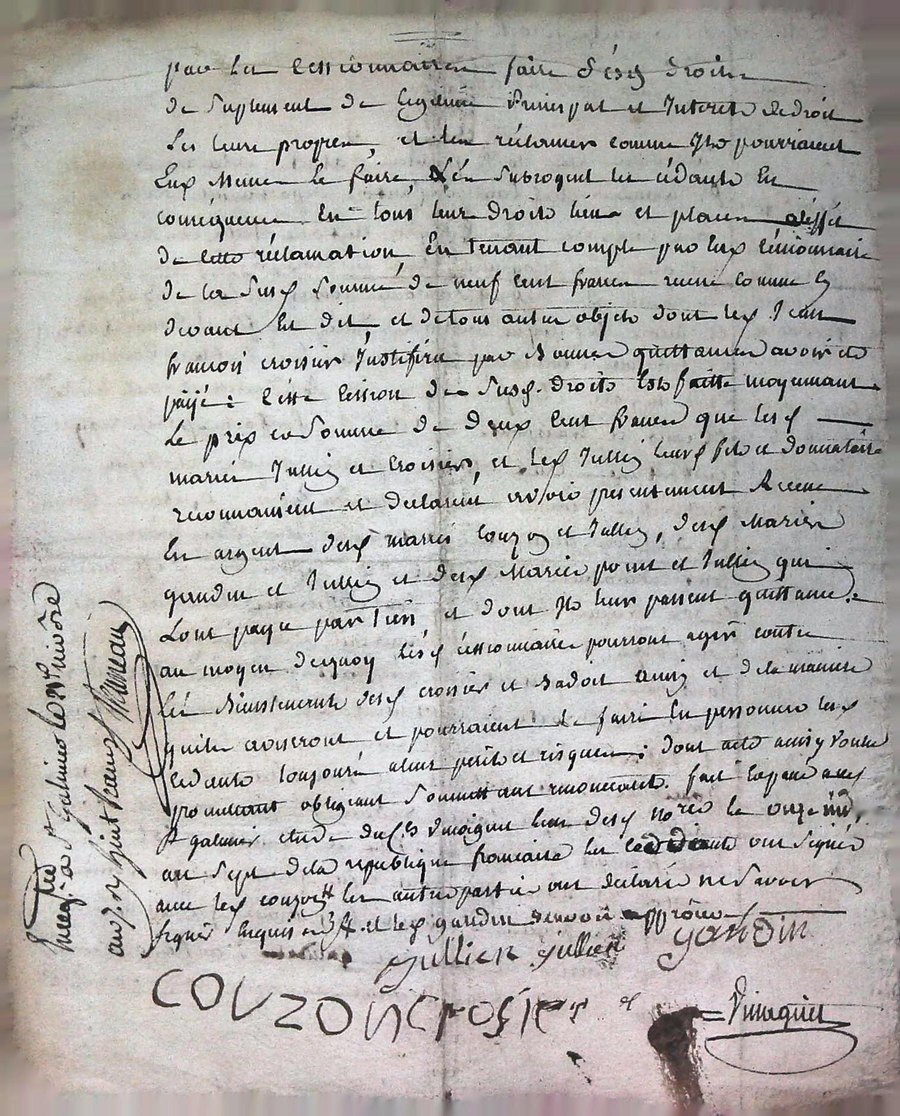 par les cessionnaires faire desd. droits
de suplement de legitime principal et interets de droit
les leurs propres, et les réclamer comme ils pourraient
Eux memes le faire, les subrogent les cédants en
conséquence En tous leurs droits lieu et places
de cette réclamation, En tenant compte par Eux cessionnaire
de la susd. somme de neuf cent francs recue comme
devant Est dit, et de tous autres objets dont led. Jean
francois crosier Justifira par bonnes quittances avoir
payé: cette cession des susd. droits Est faitte moyennant
Le prix et Somme de deux cent francs que lesd.
mariés Jullien et Croisier, et led. Jullien leurs fils et donnataire
reconnaissent et declarent avoir presentement Receue
En argent desd. mariés Couzon et Jullien, desd. Mariés
gaudin et Jullien et desd. Mariés point et Jullien qui
Lont payé par tiers et dont Ils leur passent quittance.
au moyen dequoy lesd. cessionnaire pourront agir contre
les desd. croisier et ainsy et de la maniere
quils aviseront et pourraient le faire En personne lesd.
cedants toujours a leurs perils et risques; dont acte ainsy voulu
promettant obligeant Soumettant renoncant. fait
St galmier etude du Cn Vinoguet lun desd. no.res le onze
an sept de la republique francaise les cedants ont signés
avec led. couzon les autres parties ont déclaré ne Savoir
signer Enquis et led. gaudin approuvé
Jullien Jullien gaudin
COUZON Crosier Vinoguet
Enregistré a St galmier le
an 7. R.